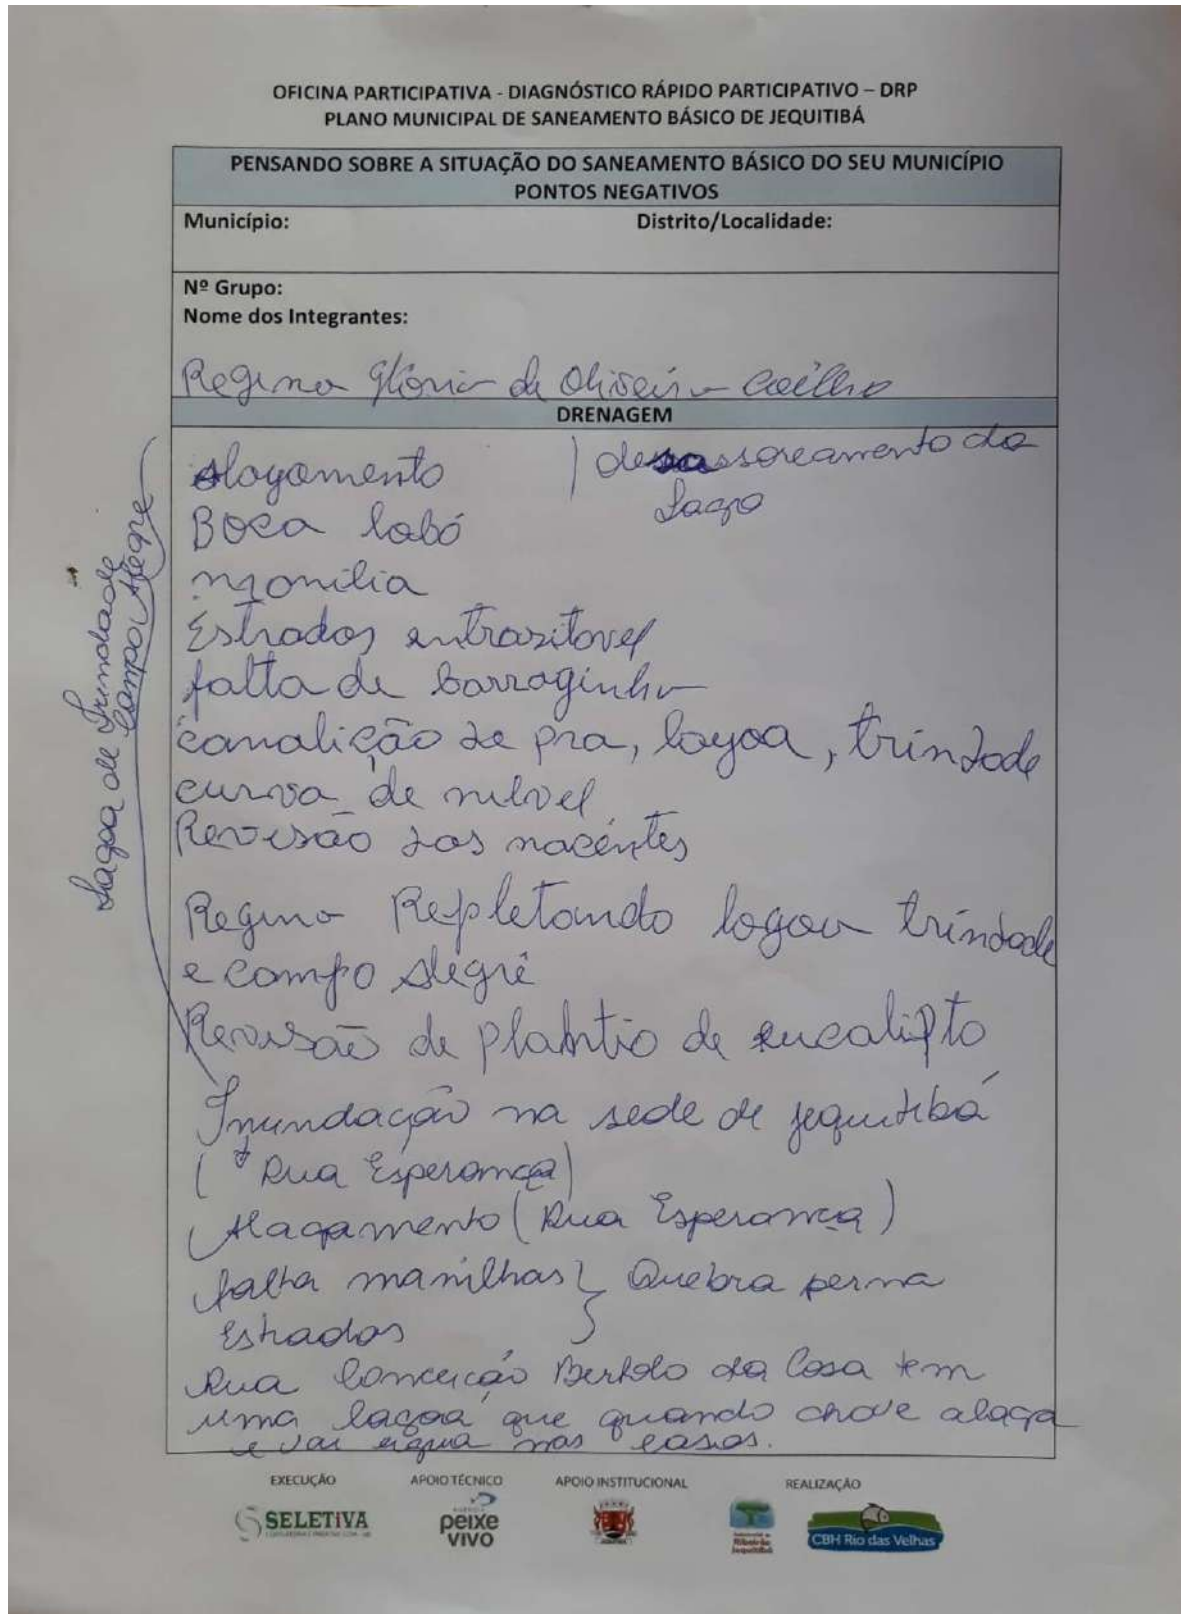 OFICINA PARTICIPATIVA - DIAGNÓSTICO RÁPIDO PARTICIPATIVO – DRP
PLANO MUNICIPAL DE SANEAMENTO BÁSICO DE JEQUITIBÁ
PENSANDO SOBRE A SITUAÇÃO DO SANEAMENTO BÁSICO DO SEU MUNICÍPIO
PONTOS NEGATIVOS
Município: Distrito/Localidade:
Nº Grupo:
Nome dos Integrantes:
Regina Glória de Oliveira Coelho
DRENAGEM
Alagamento
desassoreamento da
Lagoa
Boca lobó
monilia
Estradas entrazitavel
falta de barraginha
canalição de pra, lagoa, trindade
curva de nilvel
Revisão das nacentes
Regina Repletando lagoa trindade
e campo Alegrê
Revisão de plantio de eucalipto
Lagoa de Trindade
Campo Alegre
Inundação na sede de jequitibá
(Rua Esperança)
Alagamento (Rua Esperança)
falta manilhas } Quebra perna
Estradas
Rua Conceição da Cosa tem
uma lagoa que quando chove alaga
e vai água nas casas.
EXECUÇÃO
APOIO TÉCNICO
APOIO INSTITUCIONAL
REALIZAÇÃO
SELETIVA
peixe
vivo
Ribeirão
Jequitibá
CBH Rio das Velhas